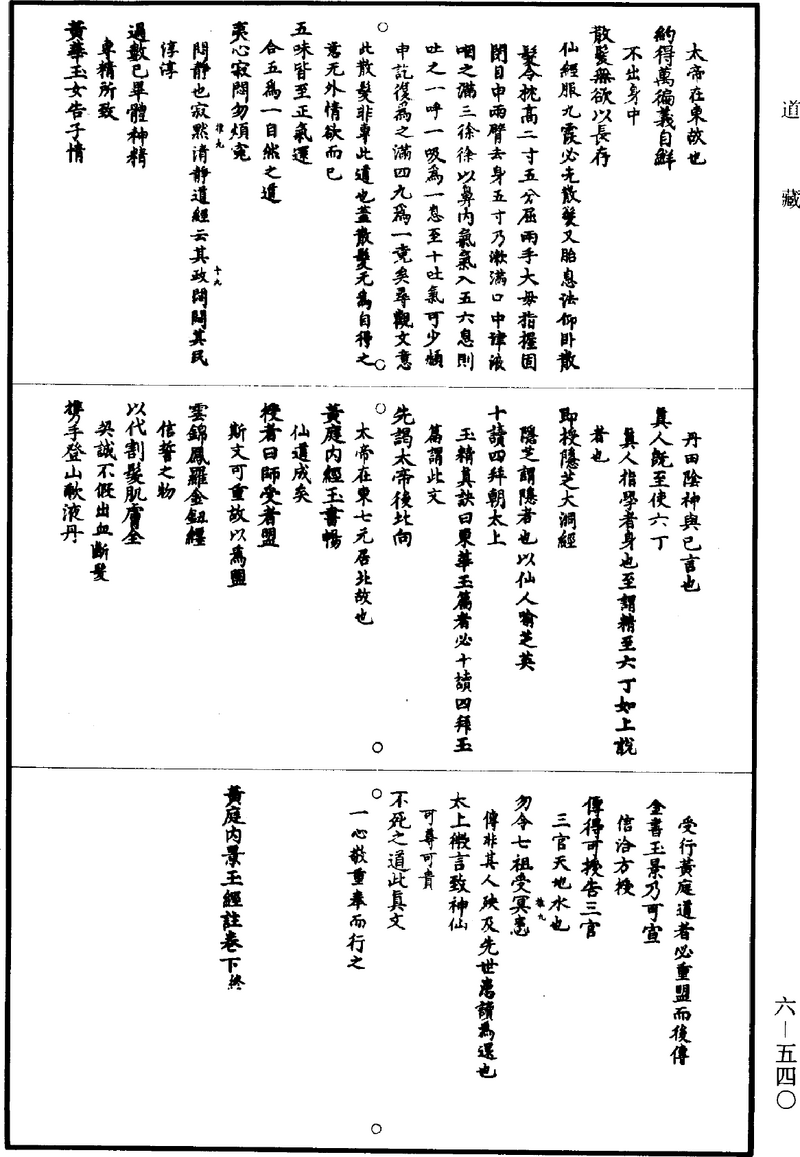 道藏
太帝在東故也
約得萬徧義自鮮
不出身中
散髮無欲以長存
仙經服九霞必先散髮又胎息法仰卧散
髮令枕髙二寸五分屈兩手大母指握固
閉目申兩臂去身五寸乃漱滿口中津液
咽之滿三徐徐以鼻内氣氣入五六息則
吐之一呼一吸為一息至十吐氣可少頻
申訖復為之滿四九為一竟矣尋觀文意
此散髮非專此道也蓋散髮无為自得之
意无外情欲而已
五味皆至正氣還
合五為一自然之道
夷心寂悶勿煩寃
悶静也寂黙清静道經云其政悶悶其民
淳淳
過數已畢體神精
專精所致
黄華玉女告子情
丹田陰神與已言也
真人既至使六丁
真人指學者身也至謂精至六丁如上說
者也
即授隱芝大洞經
隱芝謂隱者也以仙人喻芝英
十讀四拜朝太上
玉精真訣曰東華玉篇者必十讀四拜玉
篇謂此文
先謁太帝後北向
太帝在東七元居北故也
黄庭内經玉書暢
仙道成矣
授者曰師受者盟
斯文可重故以為盟
雲錦鳳羅金鈕纏
信誓之物
以代割髮肌膚全
契誠不假出血斷髮
攜手登山歃液丹
受行黄庭道者必重盟而後傳
金書玉景乃可宣
信洽方授
傳得可授告三官
三官天地水也
勿令七祖受冥患
傳非其人殃及先世患讀為還也
太上微言致神仙
可尊可貴
不死之道此真文
一心敬重奉而行之
黄庭内景玉經註卷下終
六—五四〇